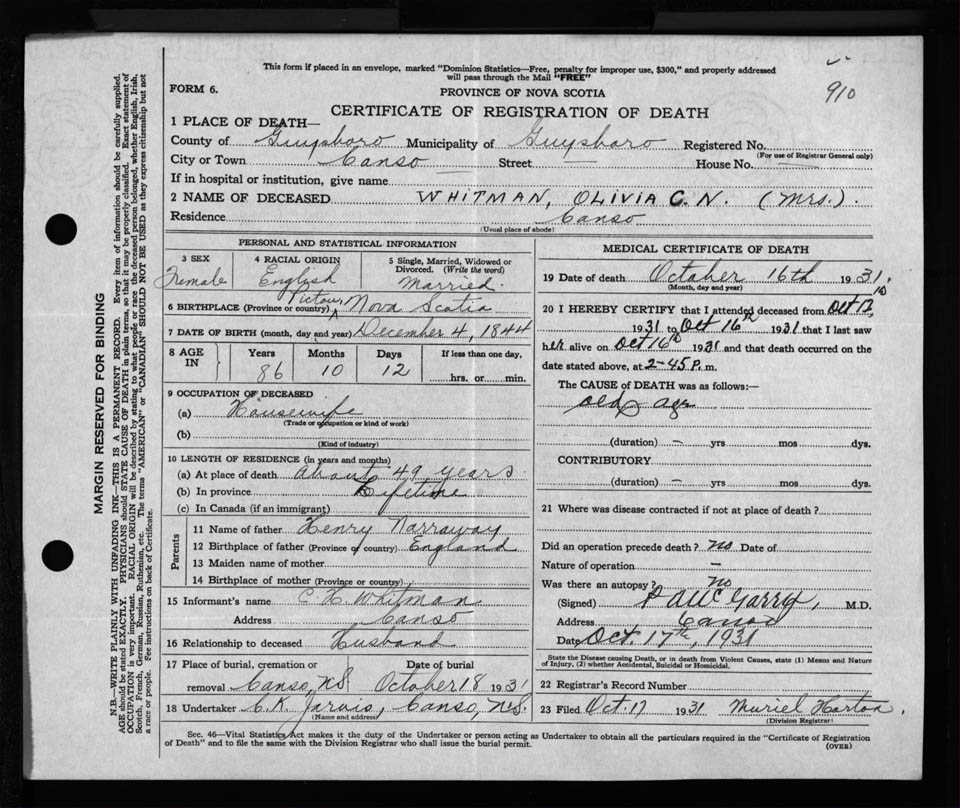 This form if placed in an envelope, marked "Dominion Statistics—Free, penalty for improper use, $300," and properly addressed
will pass through the Mail "FREE"
910
FORM 6.
PROVINCE OF NOVA SCOTIA
CERTIFICATE OF REGISTRATION OF DEATH
1 PLACE OF DEATH—
County of Guysboro Municipality of Guysboro Registered No.
(For use of Registrar General only)
City or Town Canso Street — House No. —
If in hospital or institution, give name —
2 NAME OF DECEASED WHITMAN, OLIVIA C. N. (Mrs.).
Residence Canso
(Usual place of abode)
PERSONAL AND STATISTICAL INFORMATION
3 SEX
Female
4 RACIAL ORIGIN
English
5 Single, Married, Widowed or
Divorced. (Write the word)
Married.
6 BIRTHPLACE (Province or country) Pictou, Nova Scotia
7 DATE OF BIRTH (month, day and year) December 4, 1844
8 AGE
IN
Years Months Days If less than one day,
86 10 12 hrs. or min.
9 OCCUPATION OF DECEASED
(a) Housewife
(Trade or occupation or kind of work)
(b)
(Kind of industry)
10 LENGTH OF RESIDENCE (in years and months)
(a) At place of death About 49 years
(b) In province Lifetime
(c) In Canada (if an immigrant)
Parents
11 Name of father Henry Narraway
12 Birthplace of father (Province or country) England
13 Maiden name of mother
14 Birthplace of mother (Province or country)
15 Informant's name C. H. Whitman
Address Canso
16 Relationship to deceased Husband
17 Place of burial, cremation or Date of burial
removal Canso, NS October 18 1931
18 Undertaker C. K. Jarvis, Canso, N.S.
(Name and address)
MEDICAL CERTIFICATE OF DEATH
19 Date of death October 16th 1931.
(Month, day and year)
20 I HEREBY CERTIFY that I attended deceased from Oct 13,
1931 to Oct 16th 1931 that I last saw
her alive on Oct 16th 1931 and that death occurred on the
date stated above, at 2-45 P. m.
The CAUSE OF DEATH was as follows:—
old age
(duration) — yrs mos dys.
CONTRIBUTORY
(duration) — yrs mos dys.
21 Where was disease contracted if not at place of death?
Did an operation precede death? no Date of
Nature of operation —
Was there an autopsy? no
(Signed) M.D.
Address Canso
Date Oct. 17th, 1931
State the Disease causing Death, or in death from Violent Causes, state (1) Means and Nature
of Injury, (2) whether Accidental, Suicidal or Homicidal.
22 Registrar's Record Number
23 Filed Oct. 17 1931 Muriel Horton.
(Division Registrar)
Sec. 46—Vital Statistics Act makes it the duty of the Undertaker or person acting as Undertaker to obtain all the particulars required in the "Certificate of Registration
of Death" and to file the same with the Division Registrar who shall issue the burial permit.
(OVER)
MARGIN RESERVED FOR BINDING
N.B.—WRITE PLAINLY WITH UNFADING INK—THIS IS A PERMANENT RECORD. Every item of information should be carefully supplied.
AGE should be stated EXACTLY. PHYSICIANS should STATE CAUSE OF DEATH in plain terms, so that it may be properly classified. Exact statement of
OCCUPATION is very important. RACIAL ORIGIN will be described by stating to what people or race the deceased person belonged, whether English, Irish,
Scotch, French, German, Russian, Ruthenian, etc. The terms "AMERICAN" or "CANADIAN" SHOULD NOT BE USED as they express citizenship but not
a race or people. See instructions on back of Certificate.